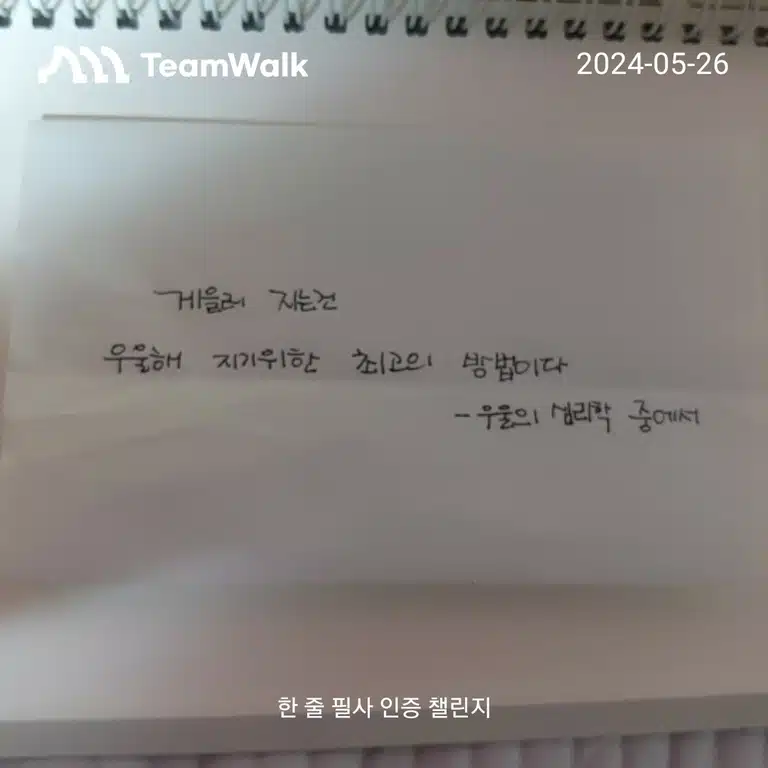 TeamWalk
2024-05-26
게을러 지는건
우울해 지기위한 최고의 방법이다
- 우울의 심리학 중에서
한 줄 필사 인증 챌린지